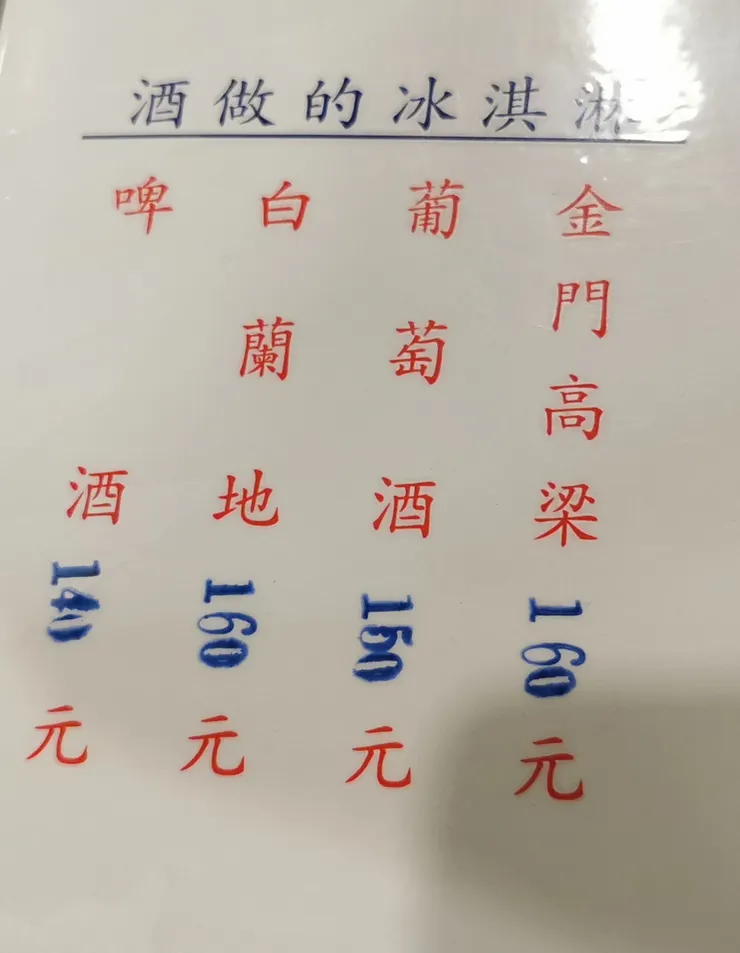 酒做的冰淇淋
金門高梁160元
葡萄酒150元
白蘭地160元
啤酒140元